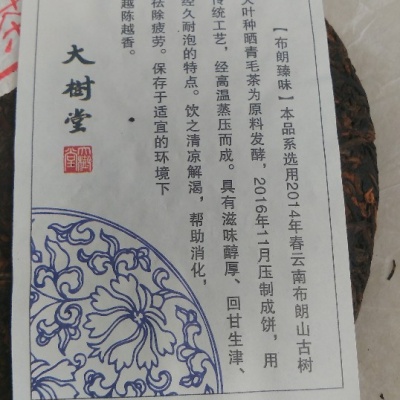 【布朗臻味】本品系选用2014年春云南布朗山古树
大叶种晒青毛茶为原料发酵，2016年11月压制成饼，用
传统工艺，经高温蒸压而成。具有滋味醇厚、回甘生津、
经久耐泡的特点。饮之清凉解渴，帮助消化，
祛除疲劳。保存于适宜的环境下
越陈越香。
大树堂